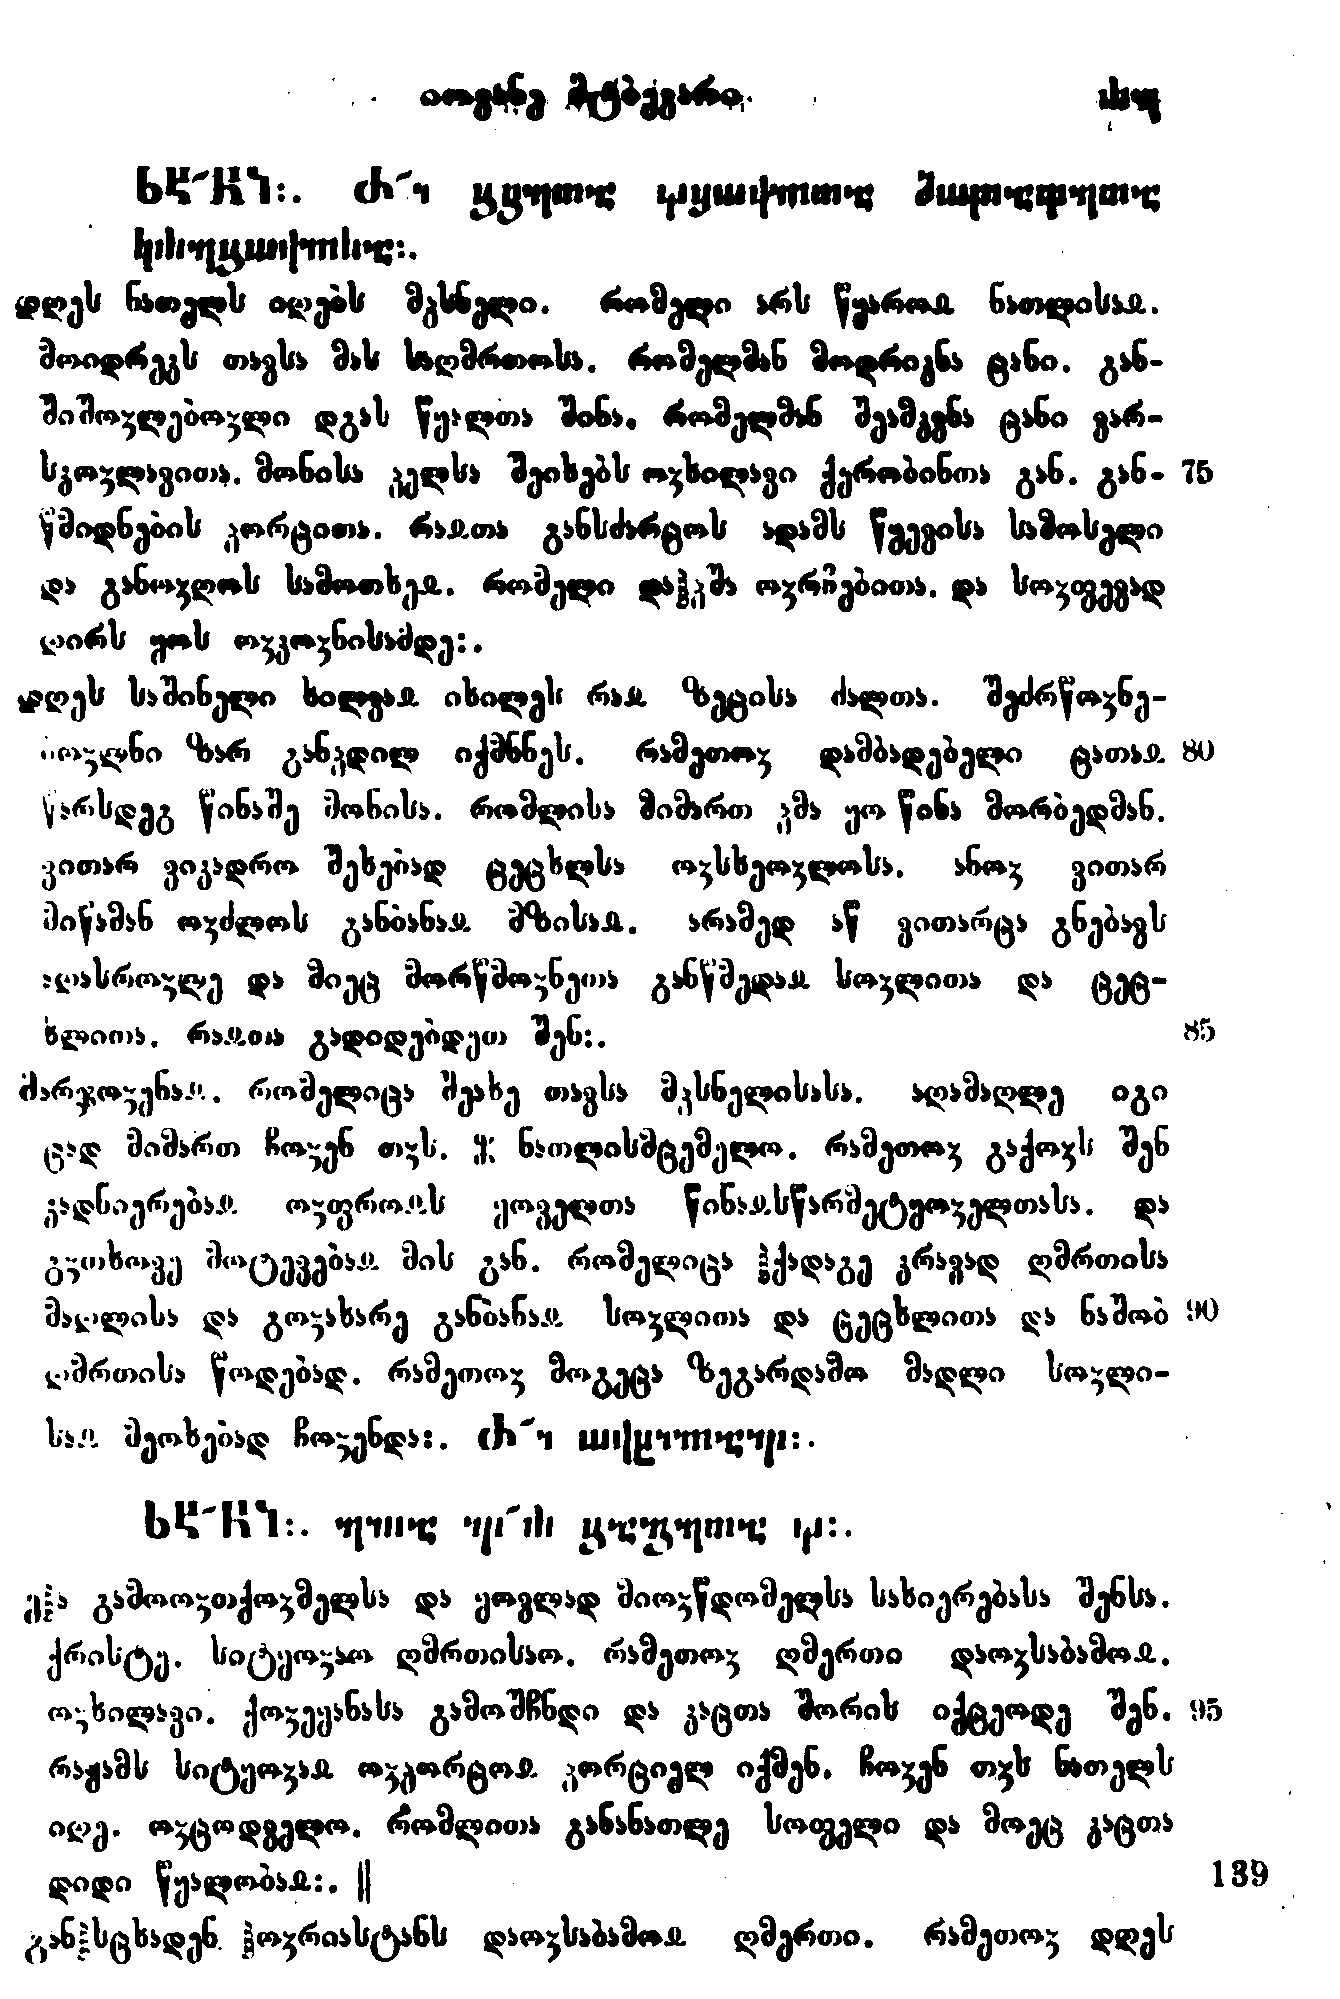 იოვანე მტბევარი
დღეს ნათელს იღებს მჴსნელი. რომელი არს წყაროჲ ნათლისაჲ.
მოიდრეკს თავსა მას საღმრთოსა. რომელმან მოდრიკნა ცანი. გან-
შიშოჳლებოჳლი დგას წყალთა შინა. რომელმან შეამკვნა ცანი ვარ-
სკოჳლავითა. მონისა ჴელსა შეიხებს ოჳხილავი ქერობინთა გან. გან- 75
წმიდნების ჴორცითა. რაჲთა განსძარცოს ადამს წყევისა სამოსელი
და განოჳღოს სამოთხეჲ. რომელი დაჰჴშა ოჳრჩებითა. და სოჳფევად
ღირს ყოს ოჳკოჳნისამდე:.
დღეს საშინელი ხილვაჲ იხილეს რაჲ ზეცისა ძალთა. შეძრწოჳნე-
ბოჳლნი ზარ განჴდილ იქმნნეს. რამეთოჳ დამბადებელი ცათაჲ 80
წარსდეგ წინაშე მონისა. რომლისა მიმართ ჴმა ყო წინა მორბედმან.
ვითარ ვიკადრო შეხებად ცეცხლსა ოჳსხეოჳლოსა. ანოჳ ვითარ
მიწამან ოჳძლოს განბანაჲ მზისაჲ. არამედ აწ ვითარცა გნებავს
აღასროჳლე და მიეც მორწმოჳნეთა განწმედაჲ სოჳლითა და ცეც-
ხლითა. რაჲთა გადიდებდეთ შენ:. 85
მარჯოჳენაჲ. რომელიცა შეახე თავსა მჴსნელისასა. აღამაღლე იგი
ცად მიმართ ჩოჳენ თჳს. ნათლისმცემელო. რამეთოჳ გაქოჳს შენ
კადნიერებაჲ ოჳფროჲს ყოველთა წინაჲსწარმეტყოჳელთასა. და
გჳთხოვე მოტევებაჲ მის გან. რომელიცა ჰქადაგე კრავად ღმრთისა
მაღლისა და გოჳახარე განბანაჲ სოჳლითა და ცეცხლითა და ნაშობ 90
ღმრთისა წოდებად. რამეთოჳ მოგეცა ზეგარდამო მადლი სოჳლი-
საჲ მეოხებად ჩოჳენდა:.
ეჰა გამოოჳთქოჳმელსა და ყოვლად მიოჳწდომელსა სახიერებასა შენსა.
ქრისტე. სიტყოჳაო ღმრთისაო. რამეთოჳ ღმერთი დაოჳსაბამოჲ.
ოჳხილავი. ქოჳეყანასა გამოშჩნდი და კაცთა შორის იქცეოდე შენ. 95
რაჟამს სიტყოჳაჲ ოჳჴორცოჲ ჴორციელ იქმენ. ჩოჳენ თჳს ნათელს
იღე. ოჳცოდველო. რომლითა განანათლე სოფელი და მოეც კაცთა
დიდი წყალობაჲ:. || 139
განჰსცხადენ ჰოჳრიასტანს დაოჳსაბამოჲ ღმერთი. რამეთოჳ დღეს